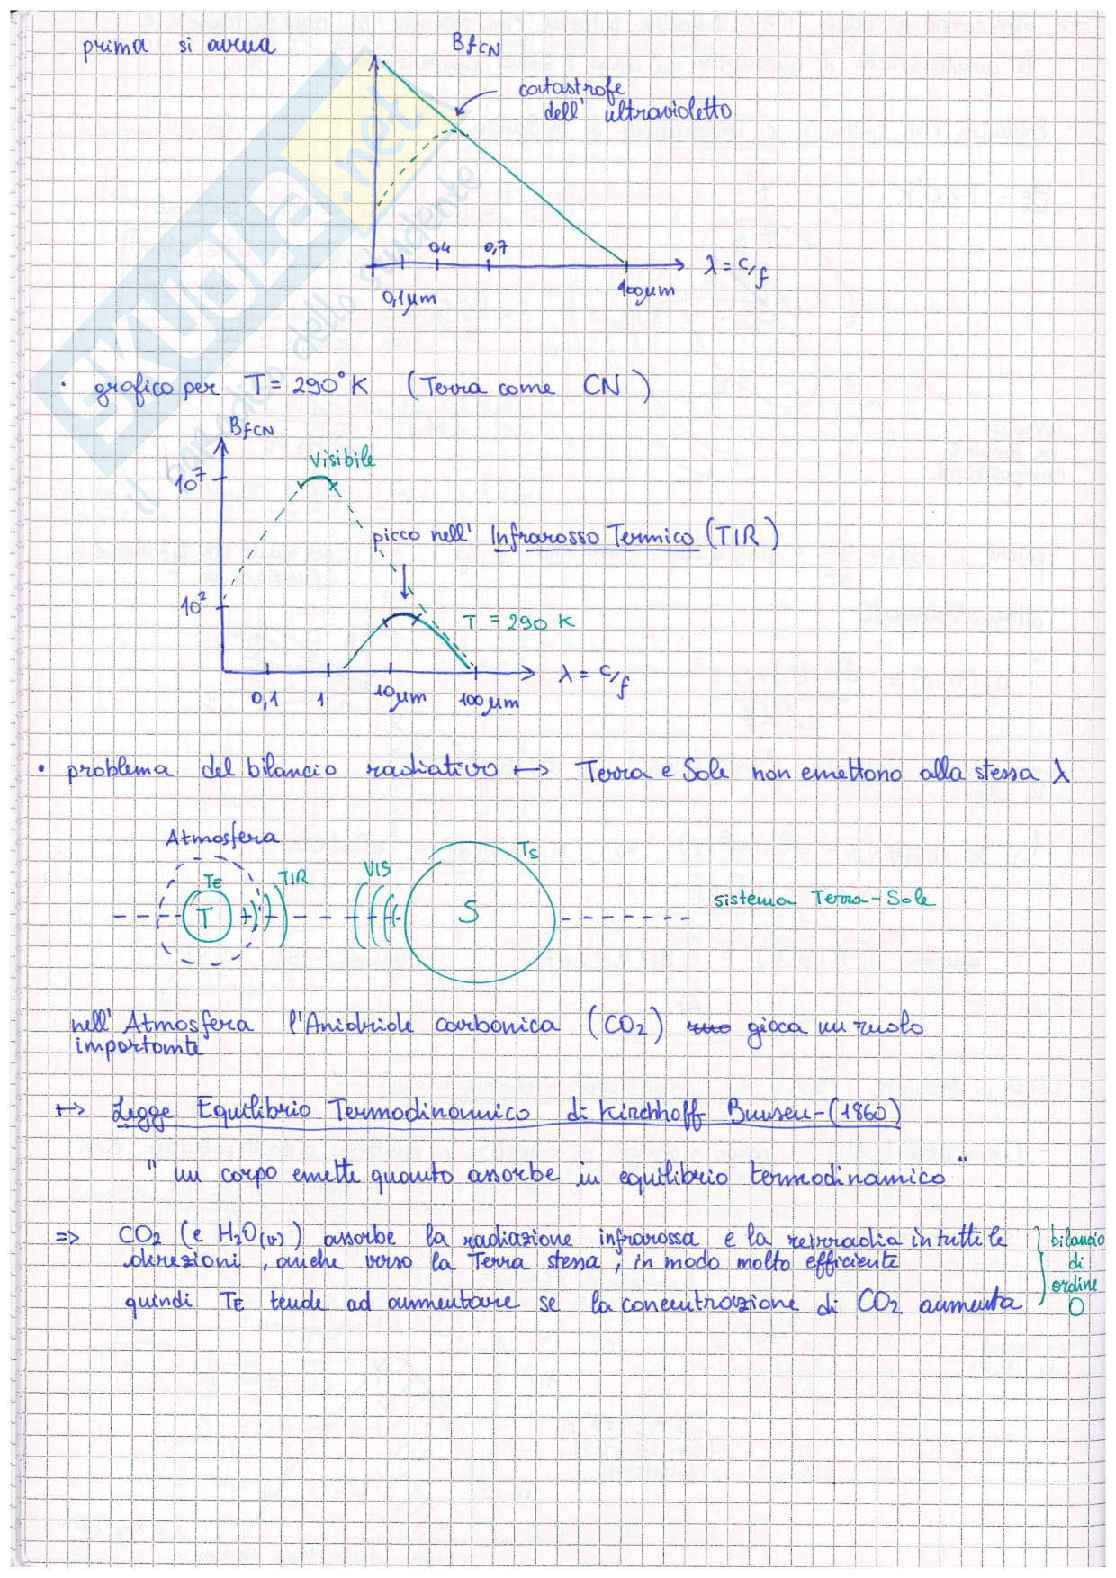 prima si aveva
BfCN
catastrofe
dell' ultravioletto
0,4
0,7
λ = c/f
0,1μm
100μm
• grafico per T = 290°K (Terra come CN)
BfCN
Visibile
10⁷
picco nell' Infrarosso Termico (TIR)
10²
T = 290 K
λ = c/f
0,1
1
10μm
100μm
• problema del bilancio radiativo ↔ Terra e Sole non emettono alla stessa λ
Atmosfera
TE
TIR
VIS
TS
T
S
sistema Terra-Sole
nell' Atmosfera l'Anidride carbonica (CO₂) gioca un ruolo
importante
↦ Legge Equilibrio Termodinamico di Kirchhoff Bunsen-(1860)
" un corpo emette quanto assorbe in equilibrio termodinamico "
⇒ CO₂ (e H₂O(v)) assorbe la radiazione infrarossa e la rerradia in tutte le
direzioni, anche verso la Terra stessa, in modo molto efficiente
quindi TE tende ad aumentare se la concentrazione di CO₂ aumenta
bilancio
di
ordine
0
SKUOLA.net
il bello dello studente